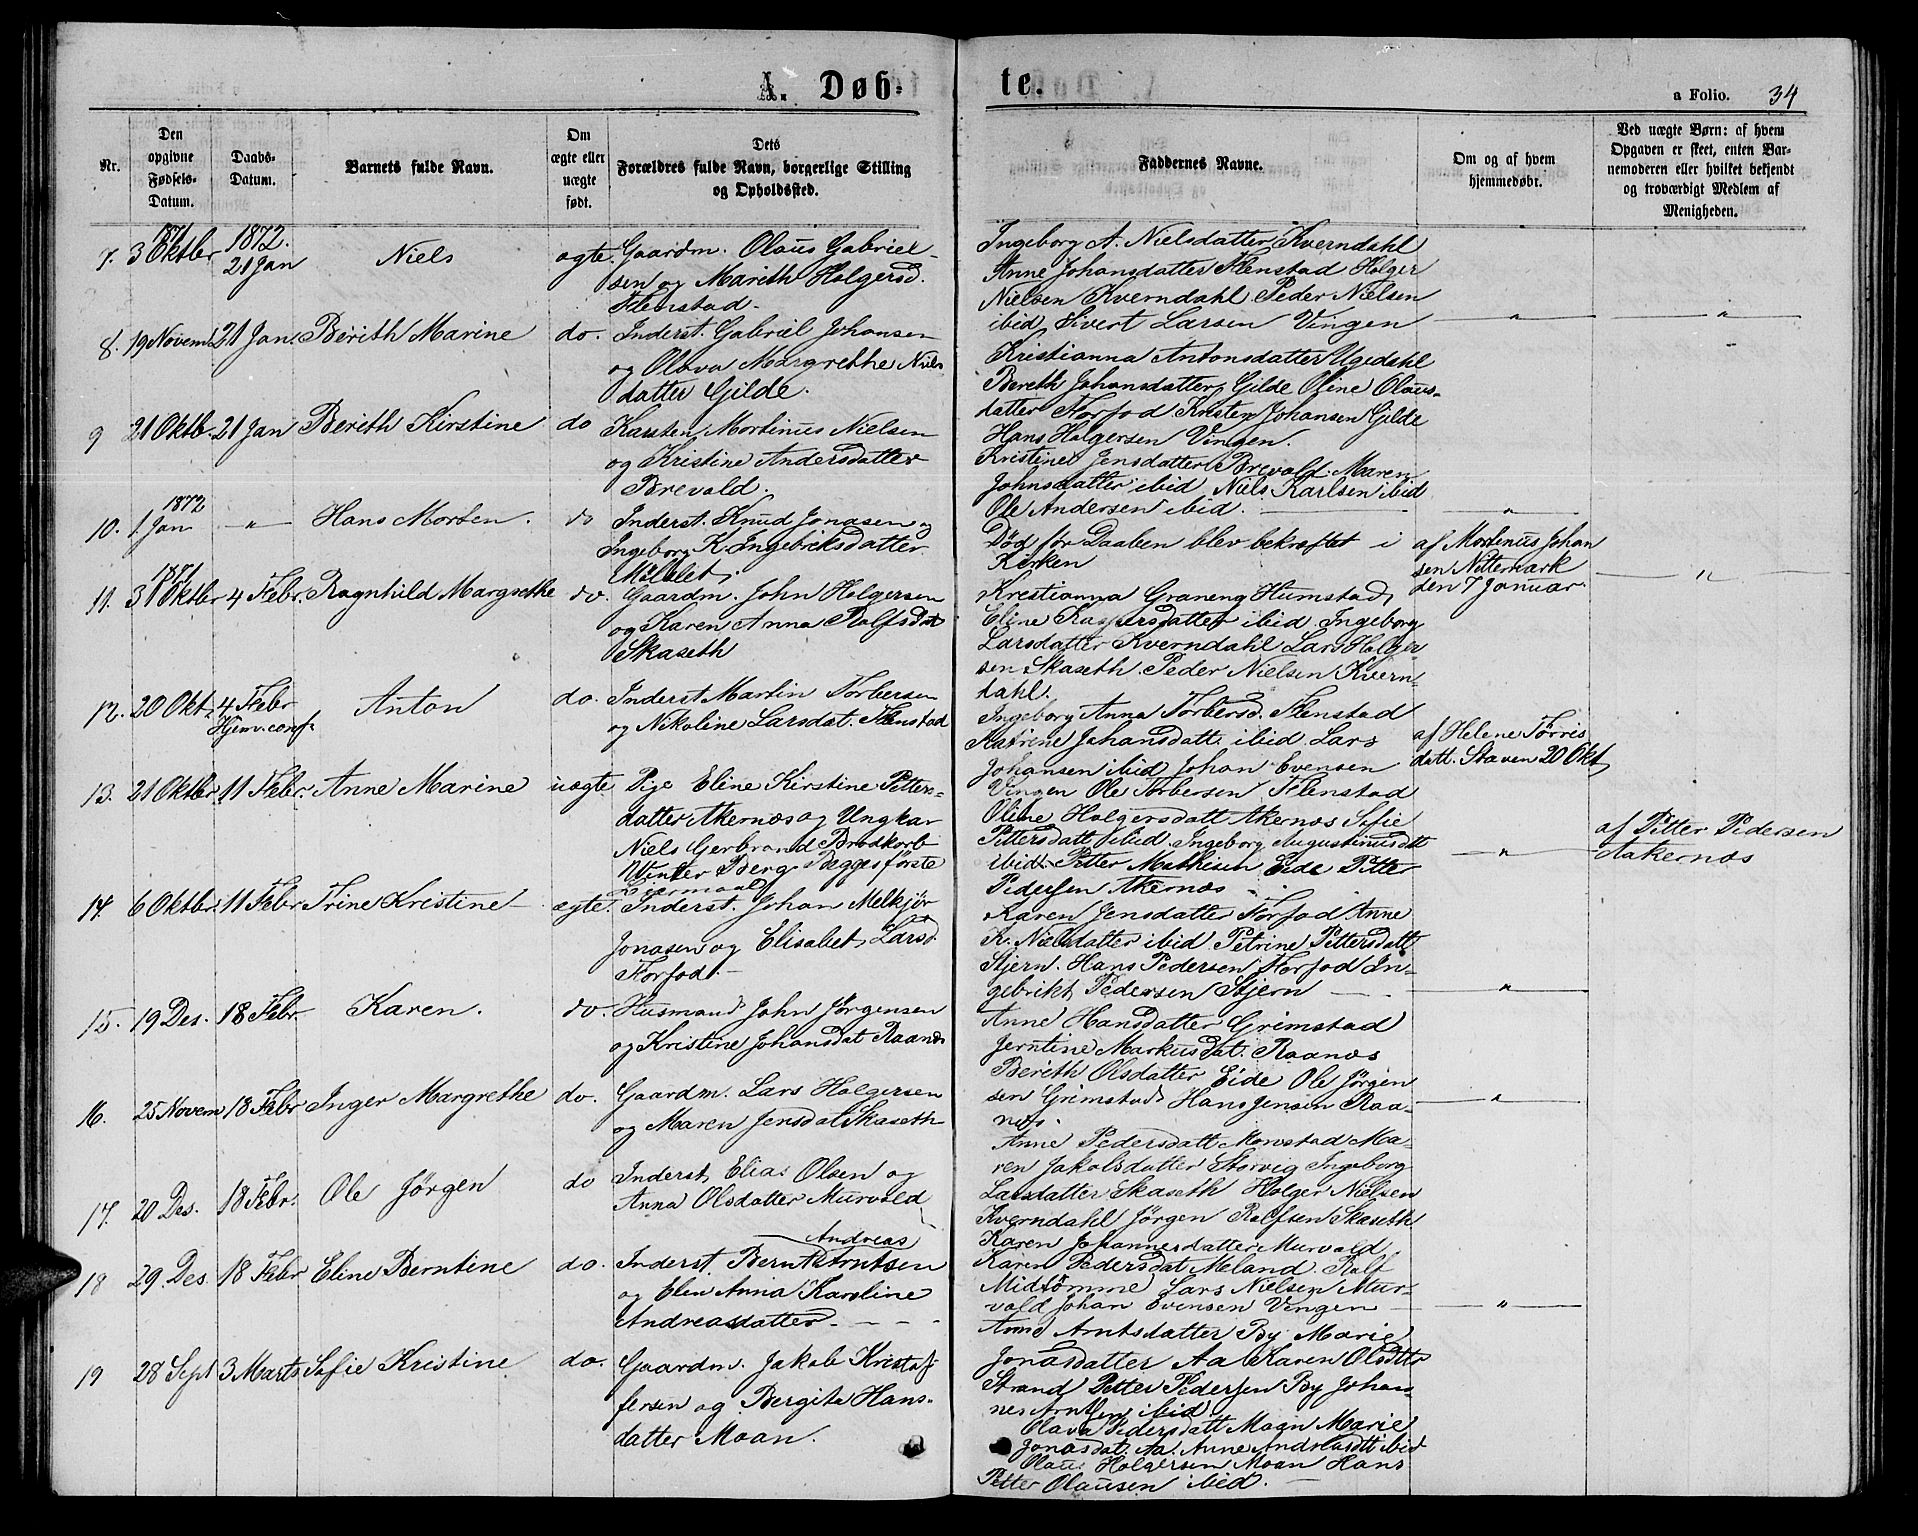 A. Døb-
te.
a Folio. 34
Nr.
Den opgivne Fødsels-Datum.
Daabs-Datum.
Barnets fulde Navn.
Om ægte eller uægte født.
Dets Forældres fulde Navn, borgerlige Stilling og Opholdssted.
Faddernes Navne.
Om og af hvem hjemmedøbt.
Ved uægte Børn: af hvem Opgaven er skeet, enten Barnemoderen eller hvilket bekjendt og troværdigt Medlem af Menigheden.
1871 1872.
7. 3 Oktbr 21 Jan Niels ægte. Gaardm. Olaus Gabriel-
sen og Marith Holgersd.
Flenstad.
Ingeborg A. Nielsdatter Kverndahl
Anne Johansdatter Flenstad Holger
Nielsen Kverndahl Peder Nielsen
ibid Sivert Larsen Vingen
8. 19 Novem 21 Jan. Berith Marine do. Inderst. Gabriel Johansen
og Olava Margrethe Niels
datter Gilde.
Kristianna Antonsdatter Ugedahl
Bereth Johansdatter Gilde Oline Olaus-
datter Forfod Kristen Johansen Gjlde
Hans Holgersen Vingen.
9 21 Oktb. 21 Jan Berith Kirstine do Karsten Mortinus Nielsen
og Kristine Andersdatter
Brevold.
Kristine Jensdatter Brevold. Maren
Johnsdatter ibid Niels Karlsen ibid
Ole Andersen ibid.
1872
10. 1 Jan " Hans Morten. do Inderst. Knud Jonasen og
Ingeborg K. Ingebriksdatter
Død før Daaben blev bekræftet i
Kirken
af Mortinus Johan
sen Nittemark
den 7 Januar.
1871
11. 31 Oktbr 4 Febr. Ragnhild Margrethe do. Gaardm. John Holgersen
og Karen Anna Rolfsdat
Skaseth
Krestianna Graneng Humstad,
Eline Kaspersdatter ibid Ingeborg
Larsdatter Kverndahl Lars Holger
sen Skaseth Peder Nielsen Kvern-
dahl.
12. 20 Okt, 4 Febr Anton do. Inderst Martin Torbersen
Hjem. conf. og Nikoline Larsdat. Flenstad
Ingeborg Anna Torbersd. Flenstad
Katrine Johansdatt. ibid Lars
Johansen ibid Johan Evensen
Vingen Ole Torbersen Flenstad
af Helene Tørris
datt. Staven 20 Okt,
13. 21 Oktbr 11 Febr. Anne Marine uægte Pige Eline Kirstine Pitters-
datter Akernæs og Ungkar
Niels Gerbrand Brodkorb
Winter Berg
Oline Holgersdatt Akernæs Sofie
Pittersdatt ibid. Ingeborg Augustinusdtt
ibid. Peter Mathisen Eide Pitter
Pedersen Akernæs
af Pitter Pedersen
Aakernæs
14. 6 Oktbr. 11 Febr Trine Kristine ægte. Inderst. Johan Melkjør
Jonasen og Elisabet Larsd.
Forfod.
Karen Jensdatter Forfod Anne
K. Nielsdatter ibid Petrine Pittersdatt
Stjern. Hans Pedersen Forfod In-
gebrikt Pedersen Stjern
15. 19 Des. 18 Febr. Karen. do. Husmand John Jørgensen
og Kristine Johansdat Raanæs
Anne Hansdatter Grimstad
Jerntine Markusdat. Raanæs
Bereth Olsdatter Eide Ole Jørgen
sen Grimstad Hans Jensen Raa-
næs.
16. 25 Novem 18 Febr Inger Margrethe do. Gaardm. Lars Holgersen
og Maren Jensdat Skaseth
Anne Pedersdatt Monstad Ma-
ren Jakobsdatter Storvig Ingeborg
Larsdatter Skaseth Holger Nielsen
Kverndahl Jørgen Rolfsen Skaseth
17. 20 Des. 18 Febr. Ole Jørgen do Inderst, Elias Olsen og
Anna Olsdatter Murvold
Karen Johannesdatter Murvold
Karen Pedersdat Meland Rolf
Midtømme Lars Nielsen Mur-
vold Johan Evensen Vingen
Andreas
18 29. Des. 18 Febr Eline Berntine do. Inderst. Bernt Arntsen
og Elen Anna Karoline
Andreasdatter
Anne Arntsdatter By Marie
Jonasdatter Aa Karen Olsdttr
Strand Petter Pedersen By Johan
nes Arntsen ibid
19 28 Sept 3 Marts Sofie Kristine do. Gaardm. Jakob Kristof
fersen og Bergita Hans-
datter Moan.
Olava Pedersdatt Moan Marie
Jonasdat. Aa. Anne Andreasdtt ibid
Olaus Holgersen Moan Hans
Petter Olausen ibid.